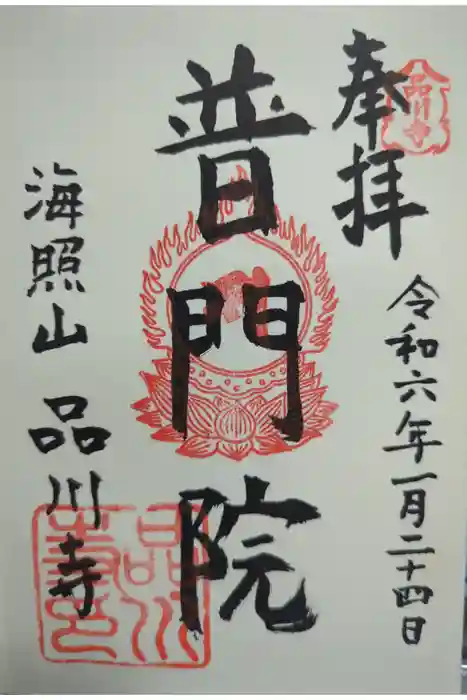 奉拝
品川寺
令和六年一月二十四日
普門院
海照山 品川寺
品川寺印